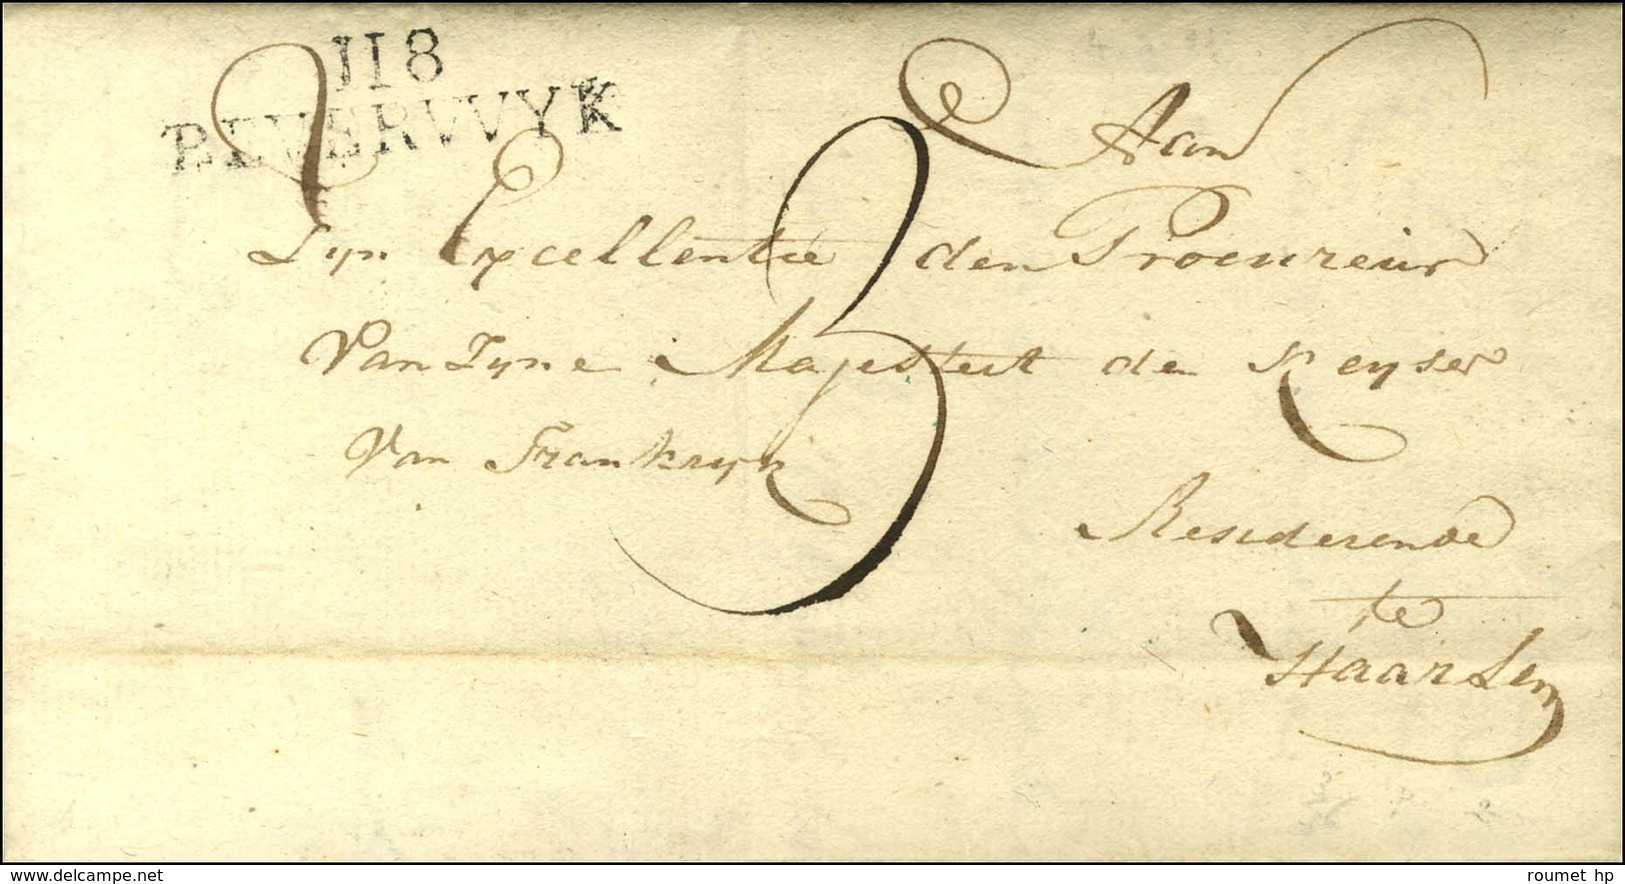 118
BEVERWYK
Aan
Zyn Excellentie den Procureur
Van Zyne Majesteit de Keyser
Van Frankryk
3
Resideerende
te
Haarlem
www.delcampe.net
roumet hp